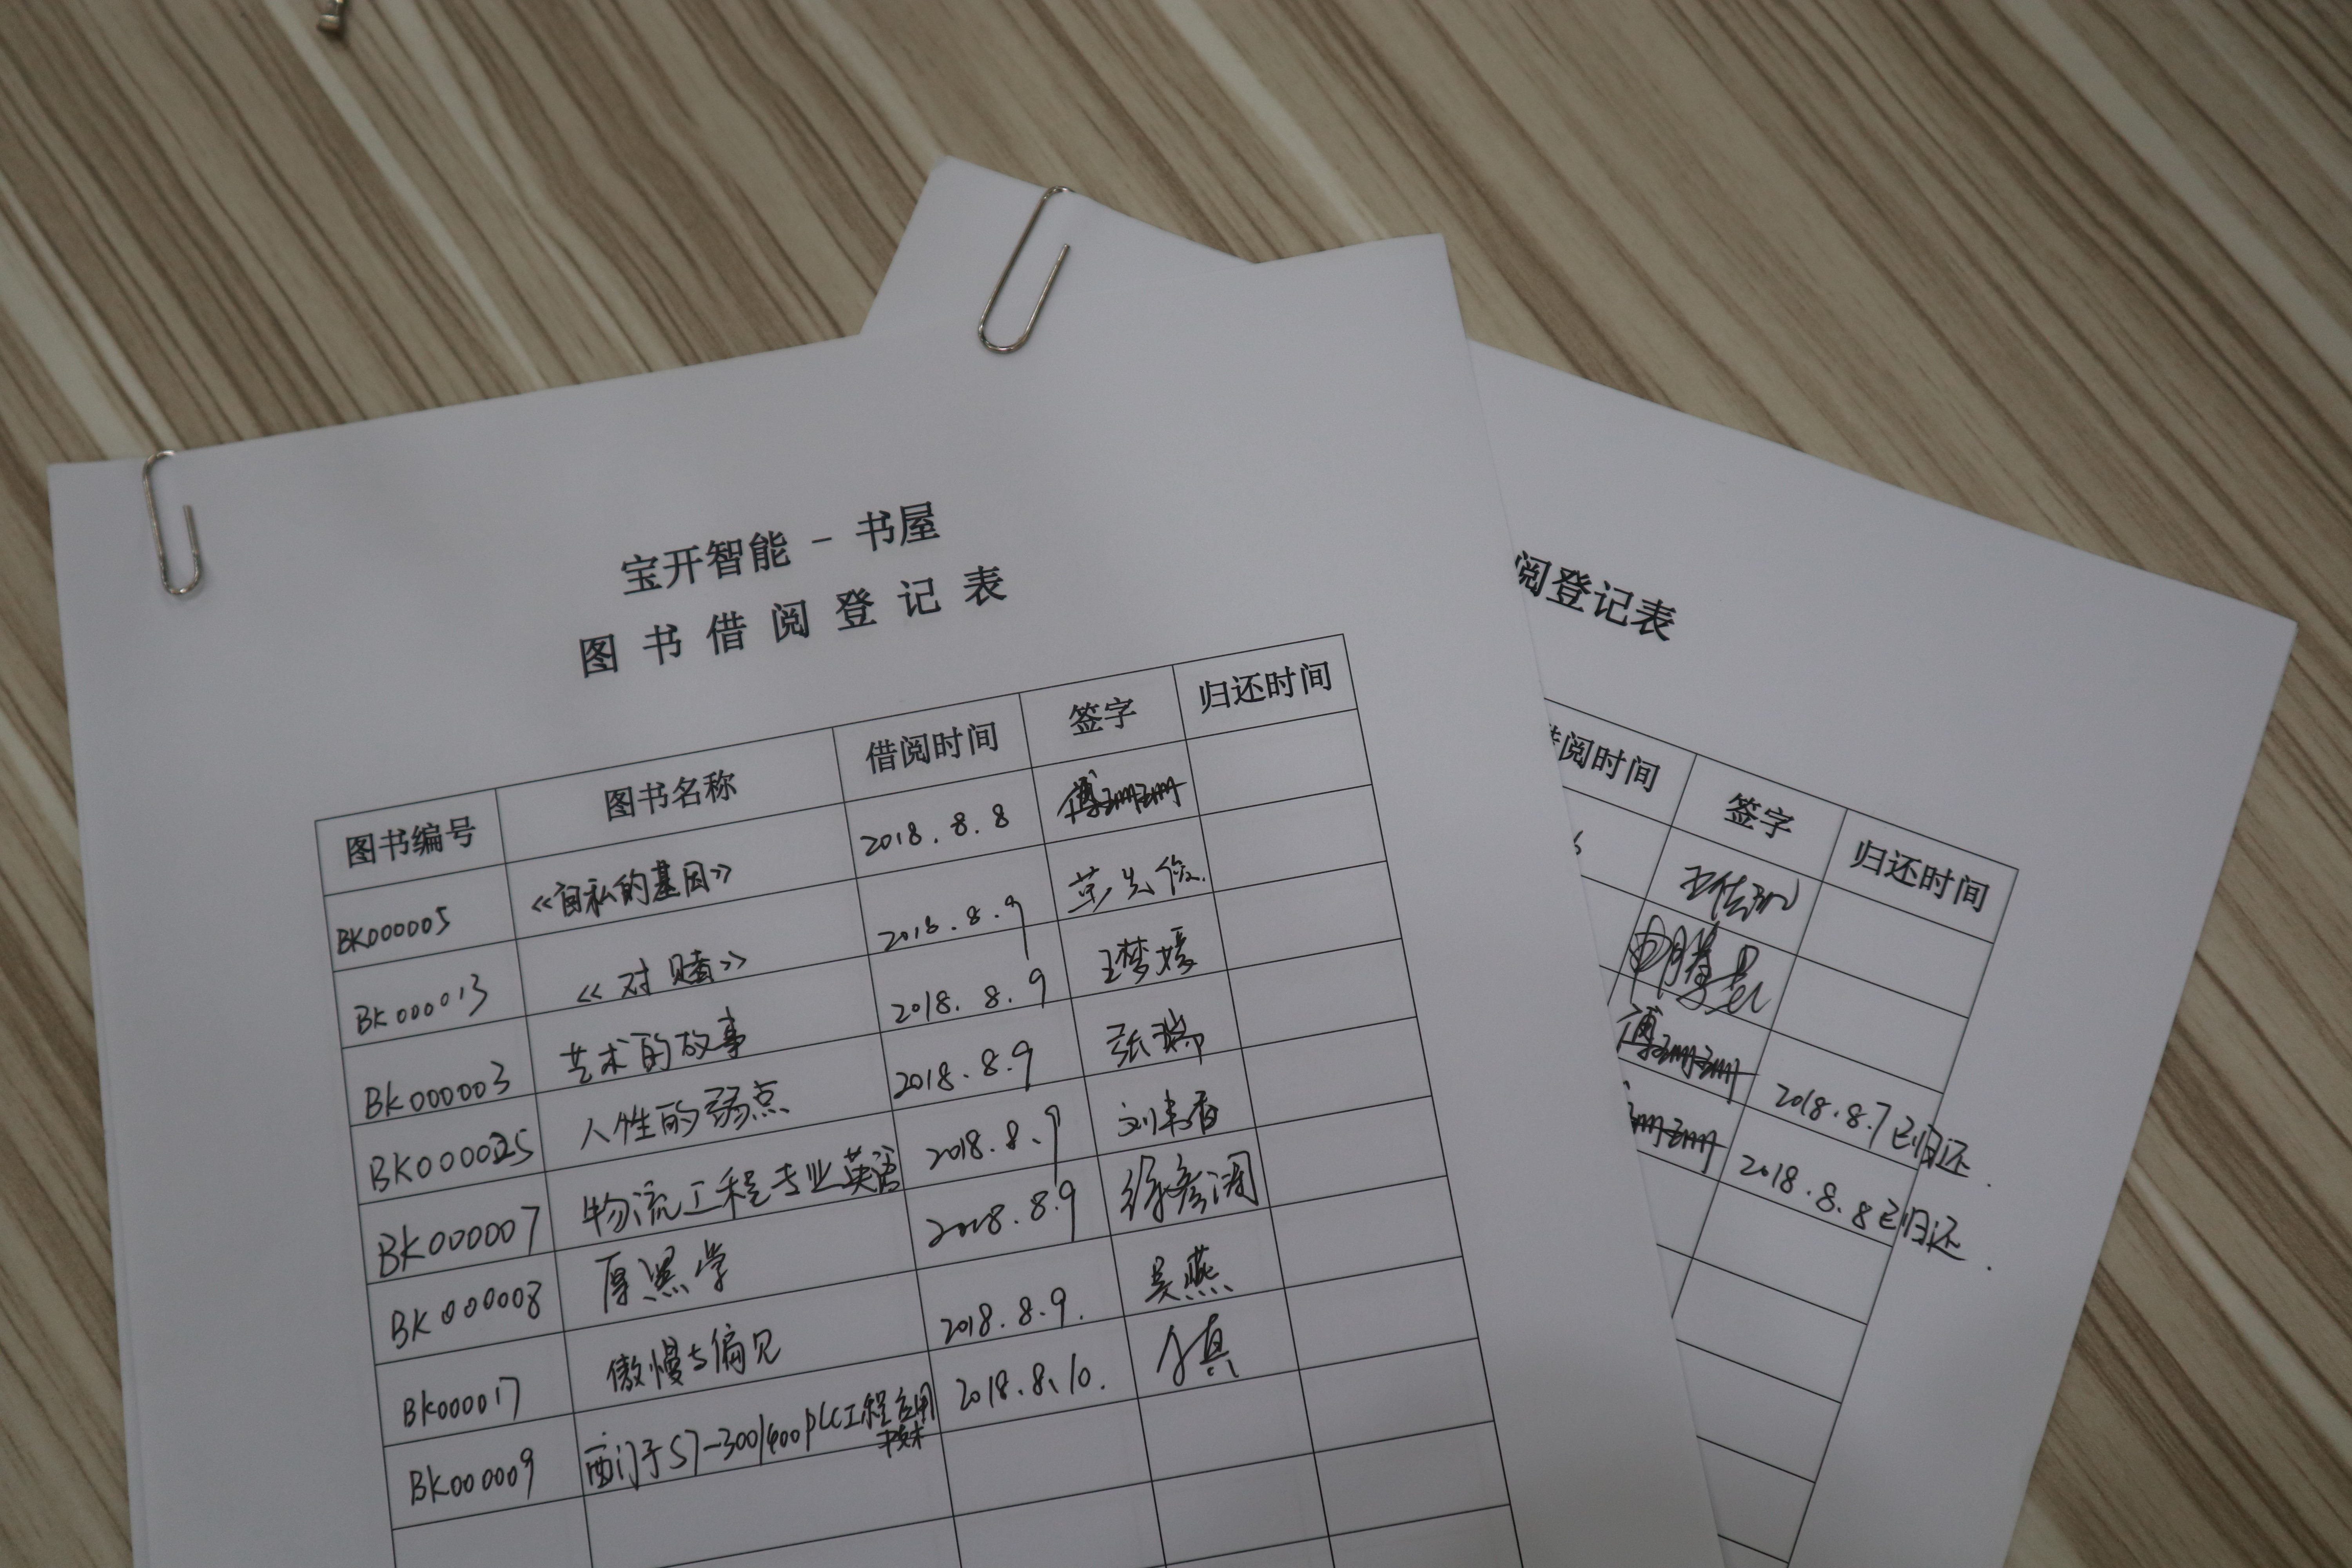 宝开智能 - 书屋
图书借阅登记表
图书编号 图书名称 借阅时间 签字 归还时间
BK000005 《自私的基因》 2018.8.8
BK000013 《对赌》 2018.8.9
BK000003 艺术的故事 2018.8.9 王梦媛
BK000025 人性的弱点 2018.8.9 张瑞
BK000007 物流工程专业英语 2018.8.9
BK000008 厚黑学 2018.8.9
BK000017 傲慢与偏见 2018.8.9. 吴燕
BK000009 西门子S7-300/400PLC工程应用技术 2018.8.10.
阅登记表
阅时间 签字 归还时间
2018.8.7已归还.
2018.8.8已归还.